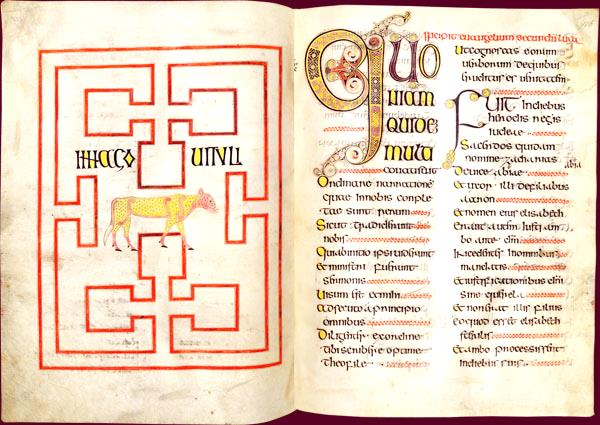 IMAGO UITULI
QUO
NIAM
QUIDEM
MULTI
conati sunt
Ordinare narrationes
quae in nobis comple
tae sunt rerum
Sicut tradiderunt
nobis
Qui ab initio ipsi uiderunt
et ministri fuerunt
sermonis
Uisum est et mihi
adsecuto a principio
omnibus
Diligenter ex ordine
tibi scribere optime
theofile
incipit euangelium secundum lucam
Ut cognoscas eorum
uerborum de quibus
eruditus es ueritatem
Fuit in diebus
herodis regis
iudeae
Sacerdos quidam
nomine zacharias
De uice abiae
Et uxor illi de filiabus
aaron
Et nomen eius elisabeth
Erant autem iusti am
bo ante
Incedentes in omnibus
mandatis
Et iustificationibus
sine querella
Et non erat illis filius
eo quod esset elisabeth
sterilis
Et ambo processissent
in diebus suis